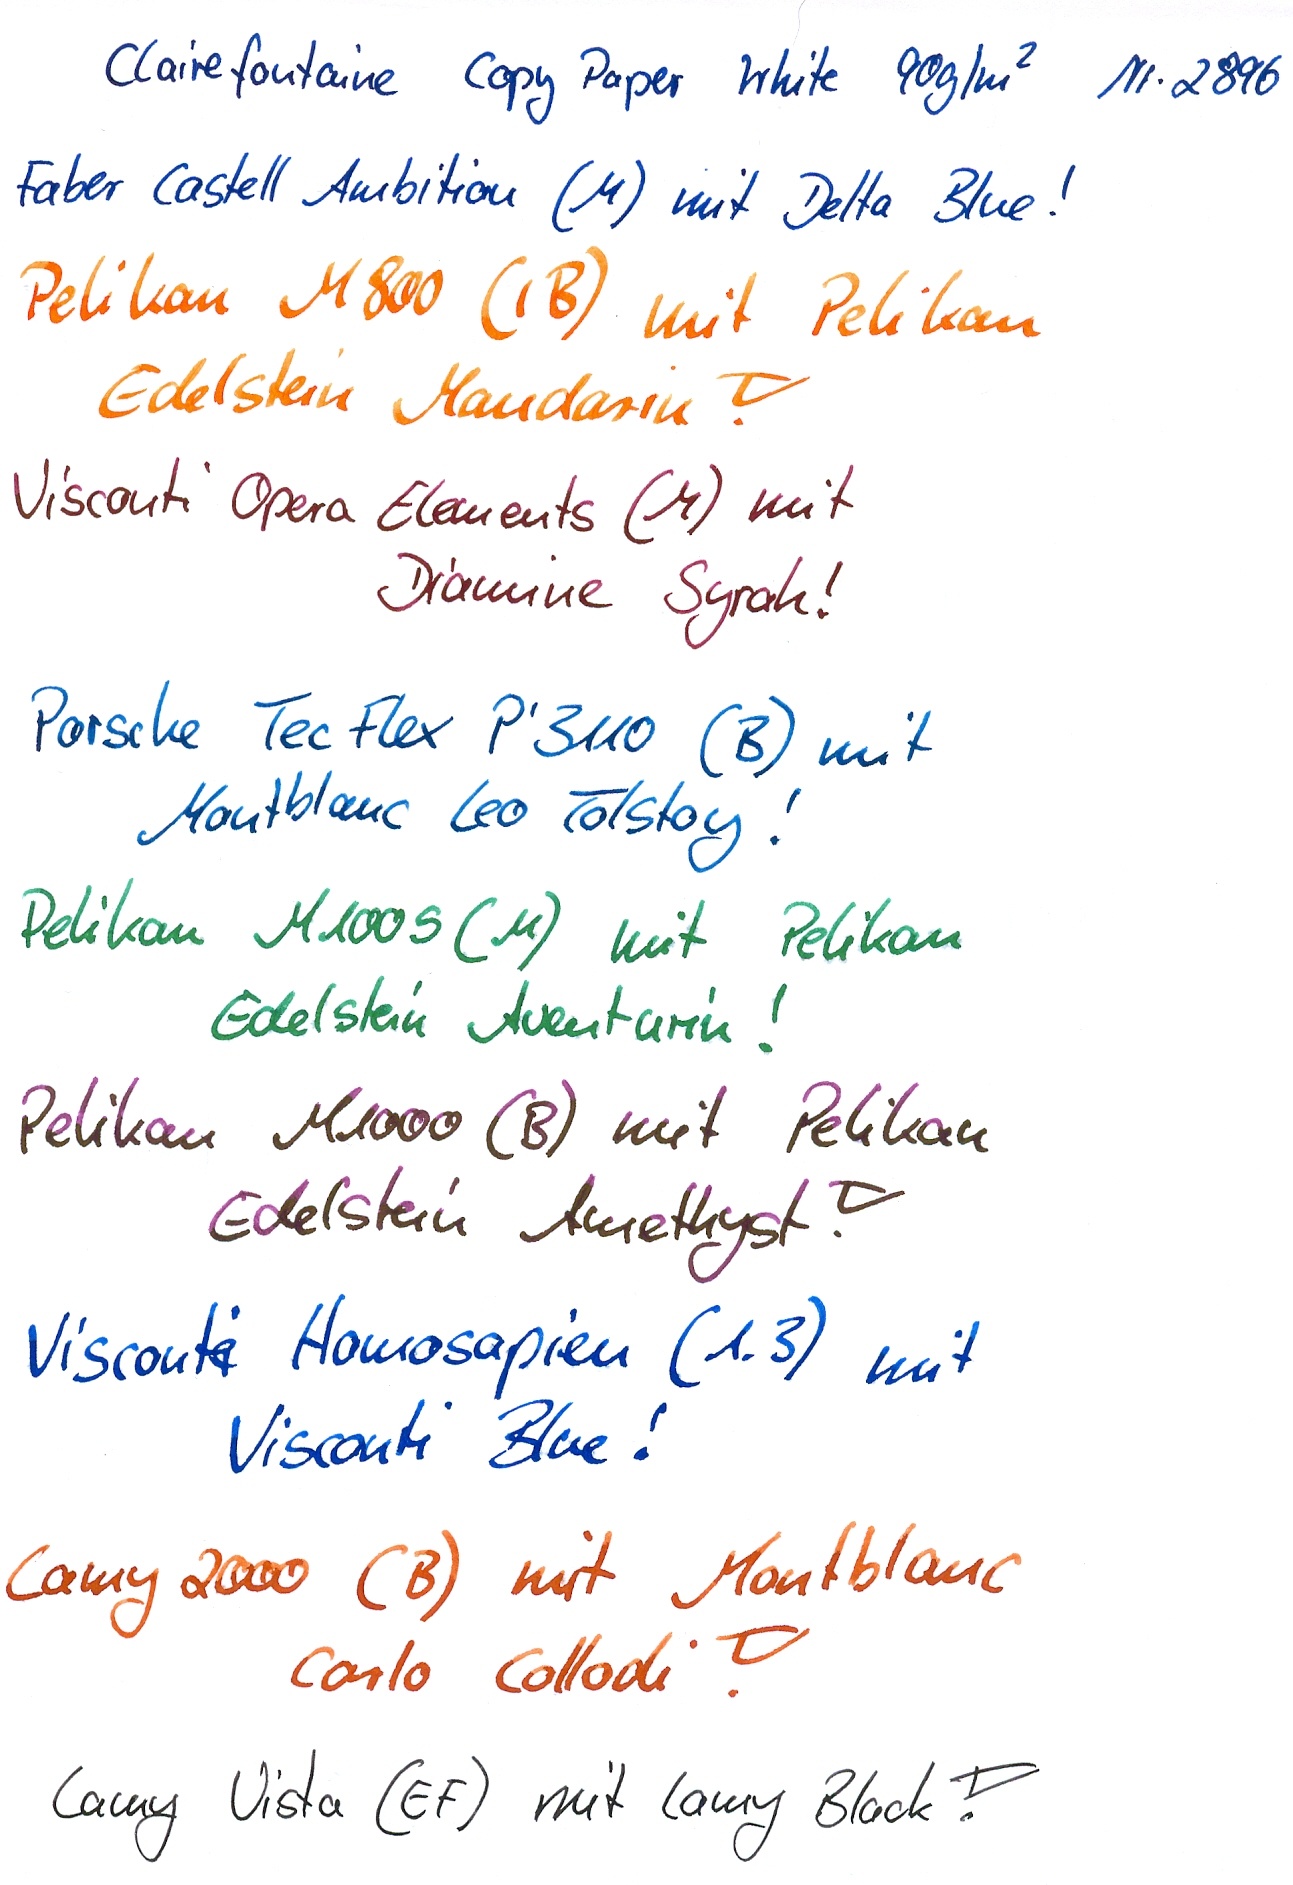 Clairefontaine Copy Paper White 90g/m² Nr. 2896
Faber Castell Ambition (M) mit Delta Blue!
Pelikan M800 (IB) mit Pelikan
Edelstein Mandarin!
Visconti Opera Elements (M) mit
Diamine Syrah!
Porsche TecFlex P'3110 (B) mit
Montblanc Leo Tolstoy!
Pelikan M1005 (M) mit Pelikan
Edelstein Aventurin!
Pelikan M1000 (B) mit Pelikan
Edelstein Amethyst!
Visconti Homosapien (1.3) mit
Visconti Blue!
Lamy 2000 (B) mit Montblanc
Carlo Collodi!
Lamy Vista (EF) mit Lamy Black!